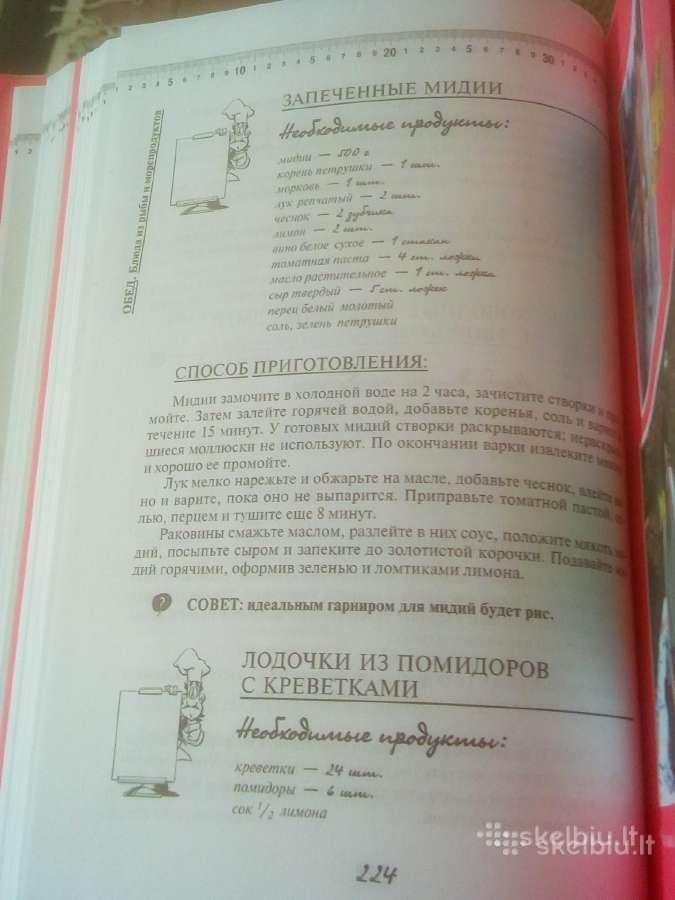 1 2 3 4 5 6 7 8 9 10 1 2 3 4 5 6 7 8 9 20 1 2 3 4 5 6 7 8 9 30 1 2 3
ОБЕД. Блюда из рыбы и морепродуктов
ЗАПЕЧЕННЫЕ МИДИИ
Необходимые продукты:
мидии — 500 г
корень петрушки — 1 шт.
морковь — 1 шт.
лук репчатый — 2 шт.
чеснок — 2 зубчика
лимон — 2 шт.
вино белое сухое — 1 стакан
томатная паста — 4 ст. ложки
масло растительное — 1 ст. ложка
сыр твердый — 5 ст. ложек
перец белый молотый
соль, зелень петрушки
СПОСОБ ПРИГОТОВЛЕНИЯ:
Мидии замочите в холодной воде на 2 часа, зачистите створки и
мойте. Затем залейте горячей водой, добавьте коренья, соль и варите
течение 15 минут. У готовых мидий створки раскрываются; нераскрыв
шиеся моллюски не используют. По окончании варки извлеките
и хорошо ее промойте.
Лук мелко нарежьте и обжарьте на масле, добавьте чеснок, влейте
но и варите, пока оно не выпарится. Приправьте томатной пастой,
лью, перцем и тушите еще 8 минут.
Раковины смажьте маслом, разлейте в них соус, положите мякоть
дий, посыпьте сыром и запеките до золотистой корочки. Подавайте
дий горячими, оформив зеленью и ломтиками лимона.
? СОВЕТ: идеальным гарниром для мидий будет рис.
ЛОДОЧКИ ИЗ ПОМИДОРОВ
С КРЕВЕТКАМИ
Необходимые продукты:
креветки — 24 шт.
помидоры — 6 шт.
сок 1/2 лимона
224
skelbiu.lt
skelbiu.lt